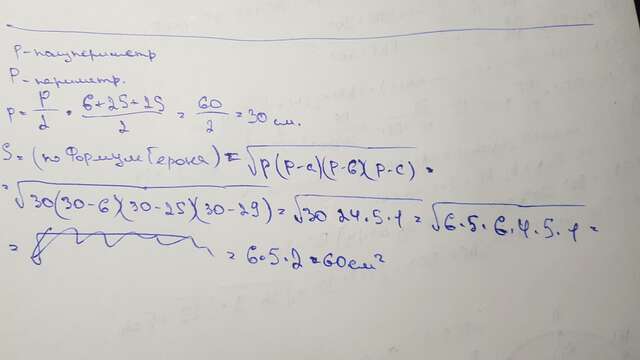 p - полупериметр
P - периметр.
p = P/2 = 6+25+29/2 = 60/2 = 30 см.
S = (по Формул Герона) = √p(p-a)(p-b)(p-c) =
= √30(30-6)(30-25)(30-29) = √30 24·5·1 = √6·5·6·4·5·1 =
= = 6·5·2 = 60 см²